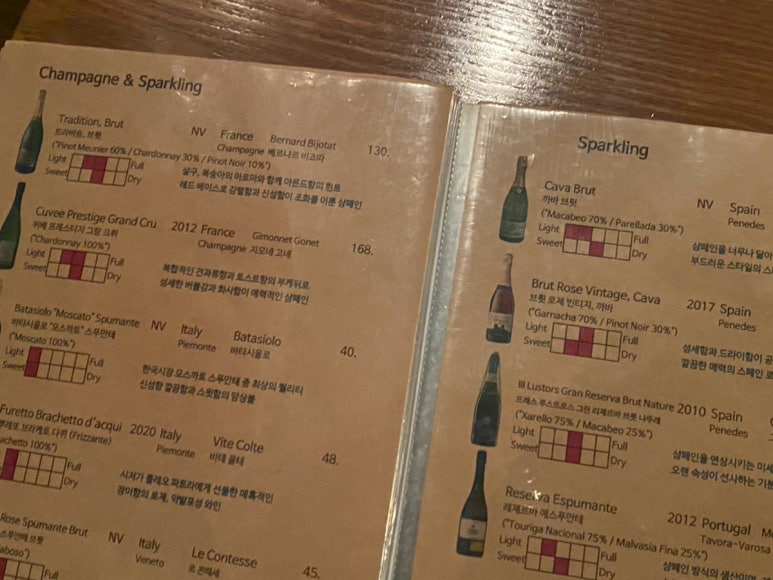 Champagne & Sparkling
Tradition, Brut NV France Bernard Bijotat 130.
트라디숑, 브륏 Champagne 베르나르 비죠따
("Pinot Meunier 60% / Chardonnay 30% / Pinot Noir 10%")
Light Full
Sweet Dry
살구, 복숭아의 아로마와 함께 아몬드향의 힌트
레드 베이스로 강렬함과 신선함이 조화를 이룬 샴페인
Cuvee Prestige Grand Cru 2012 France Gimonnet Gonet 168.
뀌베 프레스티지 그랑 크뤼 Champagne 지모네 고네
("Chardonnay 100%")
Light Full
Sweet Dry
복합적인 견과류향과 토스트향의 부케뒤로
섬세한 버블감과 화사함이 매력적인 샴페인
Batasiolo "Moscato" Spumante NV Italy Batasiolo 40.
바타시올로 "모스까토" 스푸만테 Piemonte 바타시올로
("Moscato 100%")
Light Full
Sweet Dry
한국시장 모스까토 스푸만테 중 최상의 퀄리티
신선함 깔끔함과 스윗함의 앙상블
Furetto Brachetto d'acqui 2020 Italy Vite Colte 48.
브라케토 다퀴 (Frizzante) Piemonte 비테 꼴테
100%")
Full
Dry
시저가 클레오 파트라에게 선물한 매혹적인
장미향의 로제, 약발포성 와인
Rose Spumante Brut NV Italy Le Contesse 45.
스푸만테 브륏 Veneto 르 꼰떼세
Full
Sparkling
Cava Brut NV Spain
까바 브륏 Penedes
("Macabeo 70% / Parellada 30%")
Light Full
Sweet Dry
샴페인을 너무나 닮아
부드러운 스타일의
Brut Rose Vintage, Cava 2017 Spain
브륏 로제 빈티지, 까바 Penedes
("Garnacha 70% / Pinot Noir 30%")
Light Full
Sweet Dry
섬세함과 드라이함이
깔끔한 매력의 스페인
III Lustors Gran Reserva Brut Nature 2010 Spain
뜨레스 루스뜨로스 그란 리제르바 브륏 나뚜레 Penedes
("Xarello 75% / Macabeo 25%")
Light Full
Sweet Dry
샴페인을 연상시키는
오랜 숙성이 선사하는
Reserva Espumante 2012 Portugal
레제르바 에스푸만테 Tavora-Varosa
("Touriga Nacional 75% / Malvasia Fina 25%")
Light Full
Sweet Dry
샴페인 방식의